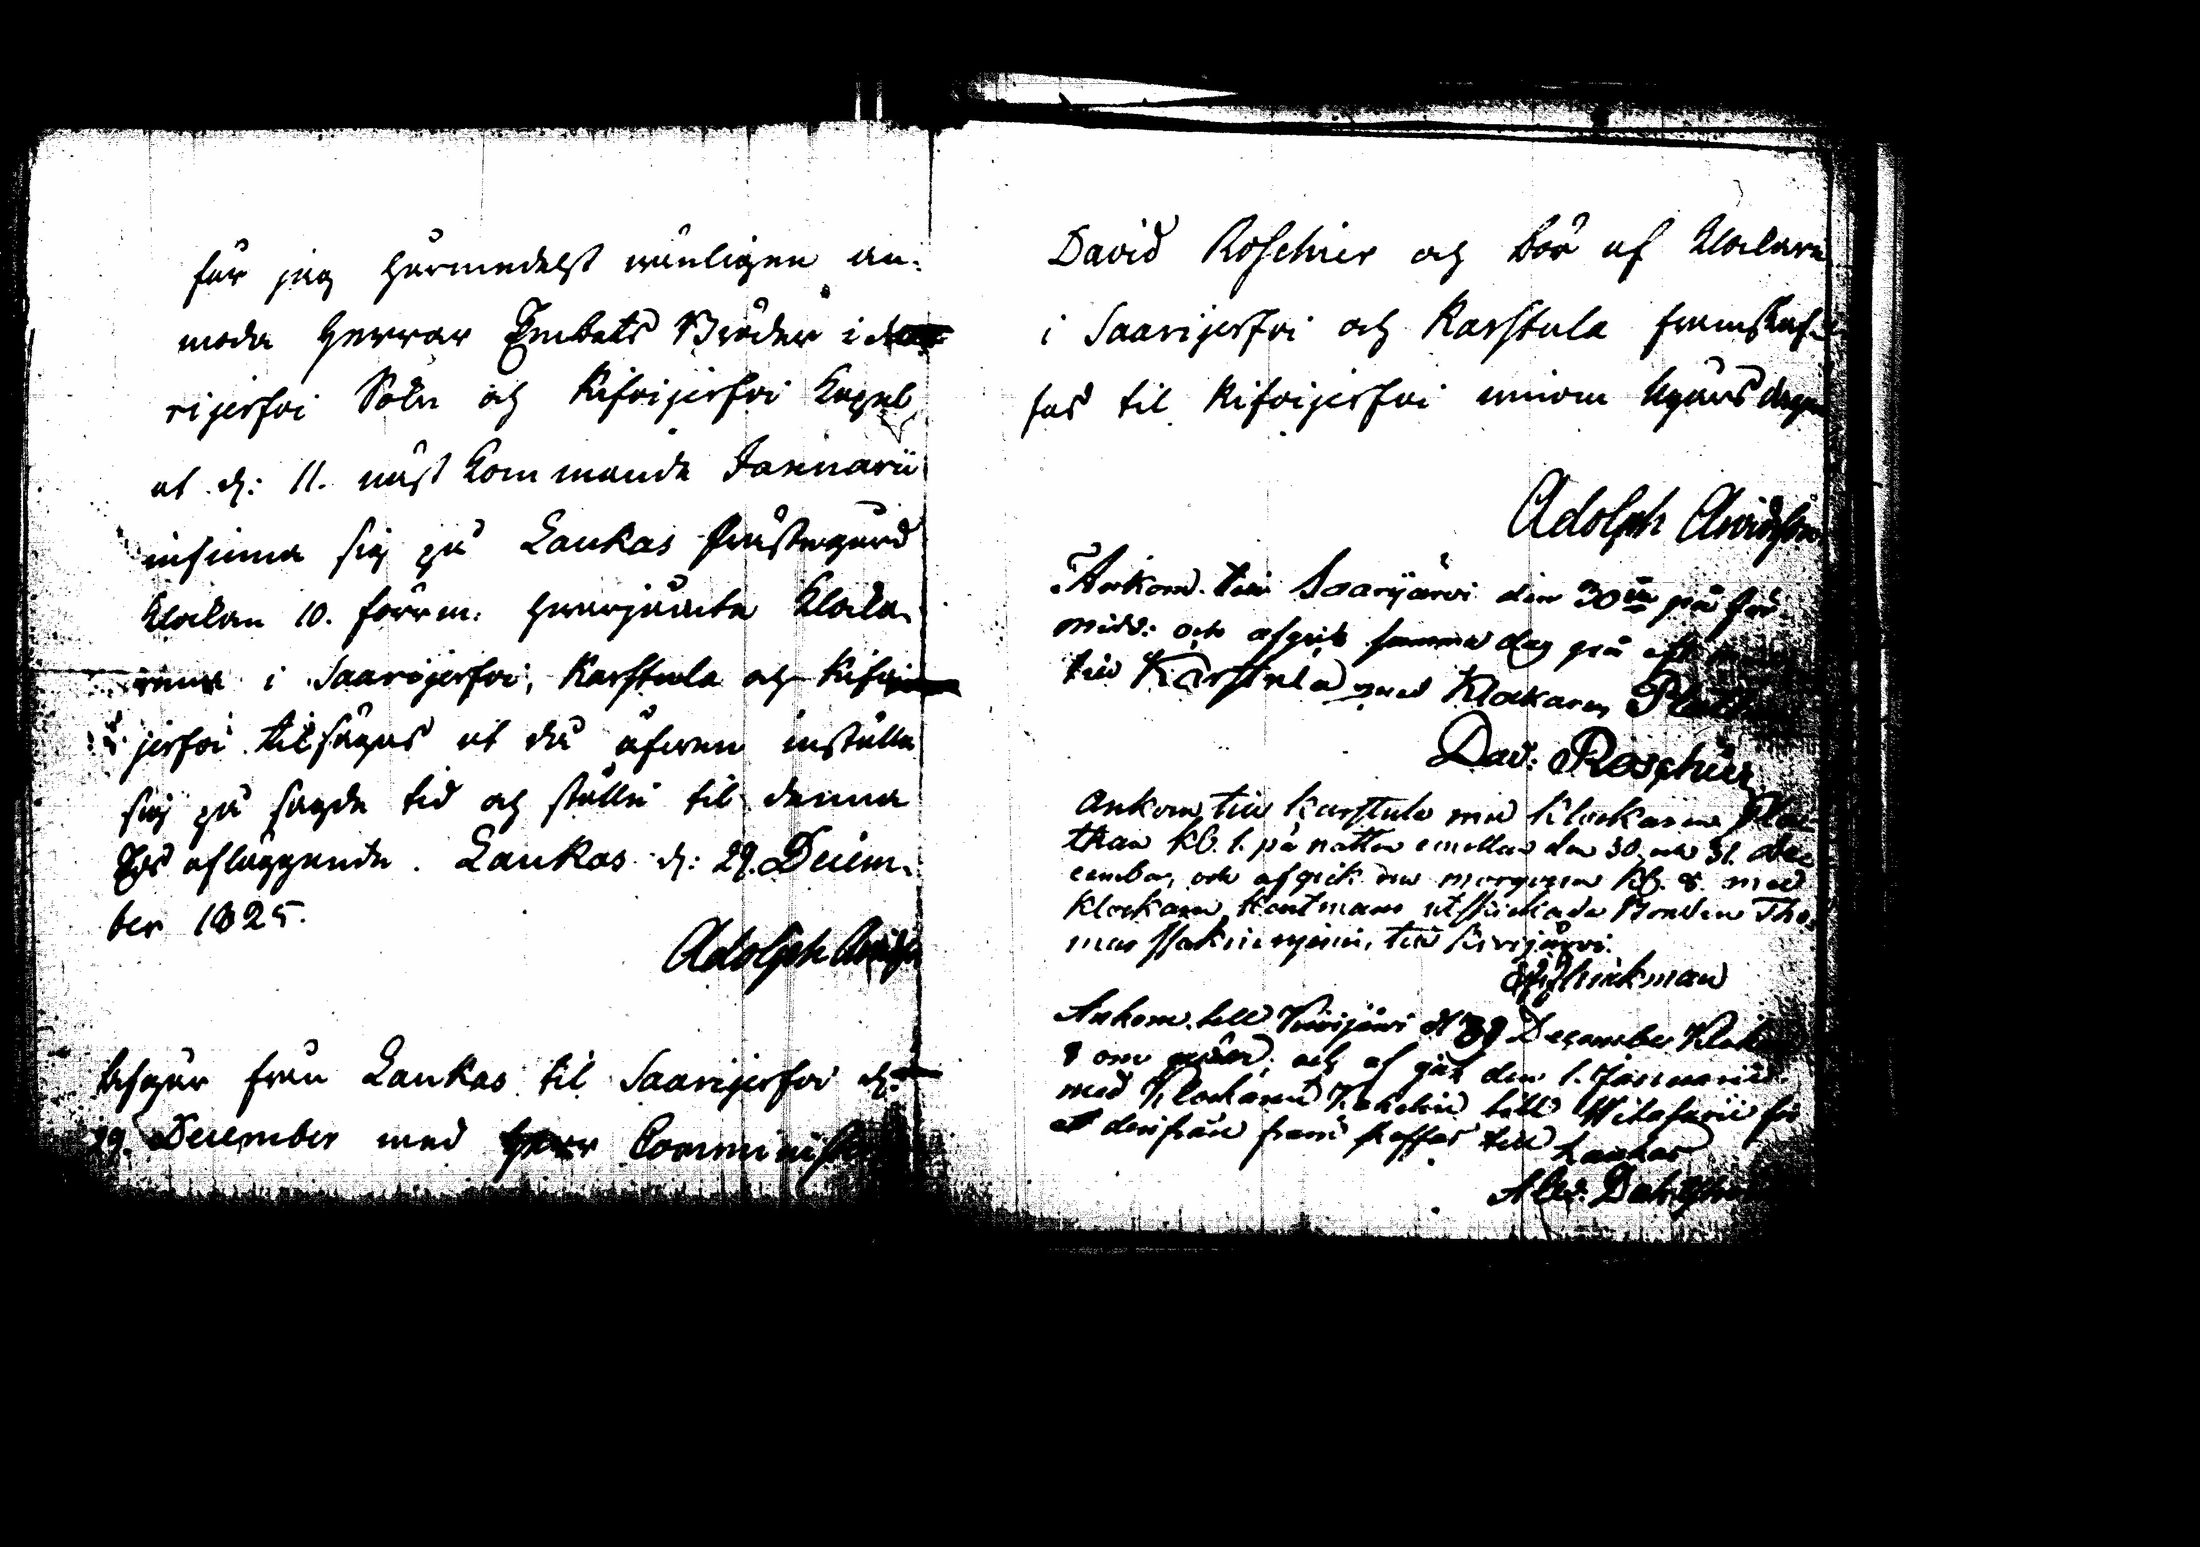 får jag härmedelst wänligen an-
moda Herrar Embets Bröder i
rijerfwi Sokn och Kifwijerfwi Capel
at d: 11. näst kommande Januarii
infinna sig på Laukas Prästegård
klockan 10. förrm. hwarjämte klocka-
rena i Saarijerfwi, Karstula och Kifwi
jerfwi tilsäges at då äfwen inställa
sig på sagde tid och ställe til denna
Eds afläggande. Laukas d: 29. Decem-
ber 1825.
Adolph
Afgår från Laukas til Saarijerfwi d:
29. December med Herr Comminister
David Roschier och bör af klockarn
i Saarijerfwi och Karstula framskaf-
fas til Kifwijerfwi innom Nyårsdagen
Adolph Arvidsson
Ankom till Saarijärvi den 30de på för
midd: och afgick samma dag på
till Karstula med Klockaren
Dav: Roschier
Ankom till Karstula med Klockaren Plan-
than kl. 1. på natten emellan den 30. och 31. de-
cember, och afgick om morgonen kl. 8. med
Klockarn utskickade Bonden Tho-
mas till Kivijärvi.
Ankom till Kivijärvi d 31 December
8 om och afgår den 1. Januarii
med Klockaren till Witasaari för
at derifrån fram skaffas till Laukas
Alex.